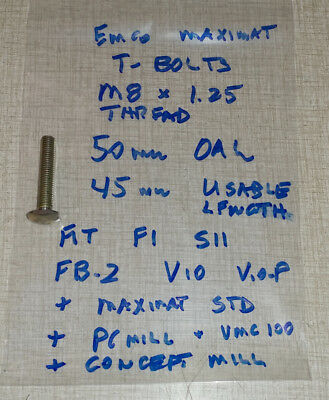 EMCO MAXIMAT
T-BOLTS
M8 x 1.25
THREAD
50mm OAL
45mm USABLE
LENGTH.
FIT F1 S11
FB-2 V10 V10-P
+ MAXIMAT STD
+ PC MILL + VMC100
+ CONCEPT MILL